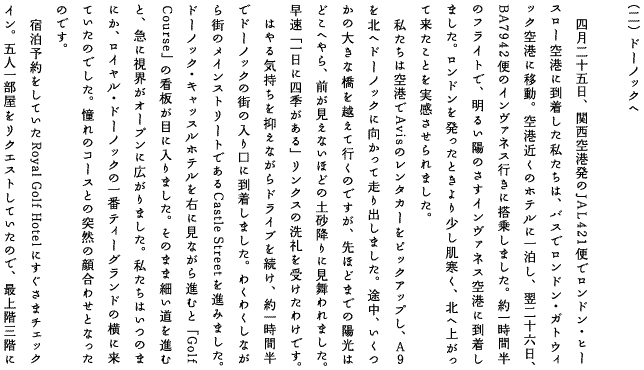 (二) ドーノックへ
四月二十五日、関西空港発のJAL421便でロンドン・ヒー
スロー空港に到着した私たちは、バスでロンドン・ガトウィ
ック空港に移動。空港近くのホテルに一泊し、翌二十六日、
BA7942便のインヴァネス行きに搭乗しました。約一時間半
のフライトで、明るい陽のさすインヴァネス空港に到着し
ました。ロンドンを発ったときより少し肌寒く、北へ上がっ
て来たことを実感させられました。
私たちは空港でAvisのレンタカーをピックアップし、A9
を北へドーノックに向かって走り出しました。途中、いくつ
かの大きな橋を越えて行くのですが、先ほどまでの陽光は
どこへやら、前が見えないほどの土砂降りに見舞われました。
早速「一日に四季がある」リンクスの洗礼を受けたわけです。
はやる気持ちを抑えながらドライブを続け、約一時間半
でドーノックの街の入り口に到着しました。わくわくしなが
ら街のメインストリートであるCastle Streetを進みました。
ドーノック・キャッスルホテルを右に見ながら進むと「Golf
Course」の看板が目に入りました。そのまま細い道を進む
と、急に視界がオープンに広がりました。私たちはいつのま
にか、ロイヤル・ドーノックの一番ティーグランドの横に来
ていたのでした。憧れのコースとの突然の顔合わせとなった
のです。
宿泊予約をしていたRoyal Golf Hotelにすぐさまチェック
イン。五人一部屋をリクエストしていたので、最上階三階に